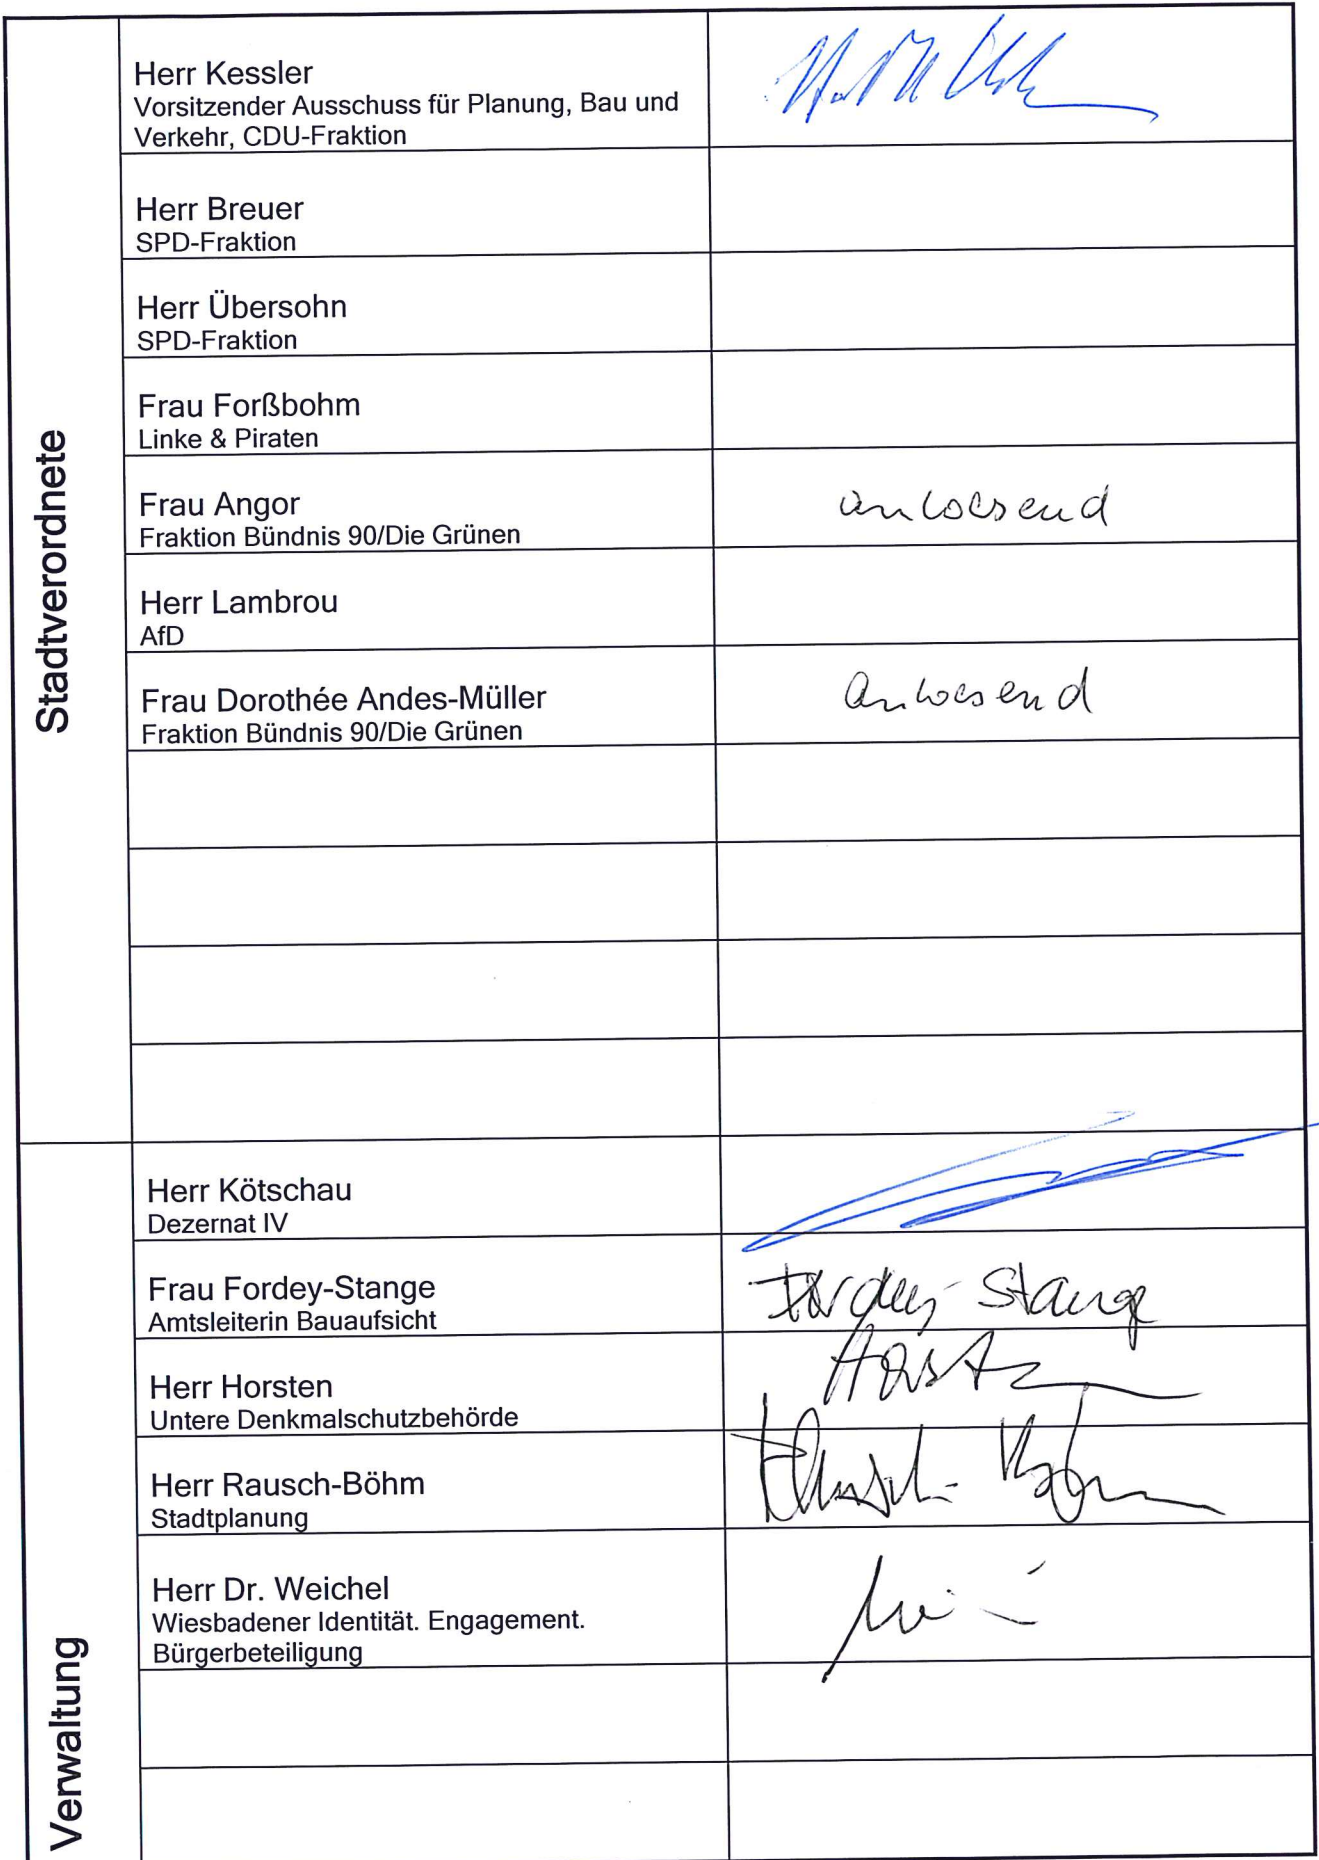 Stadtverordnete
Herr Kessler
Vorsitzender Ausschuss für Planung, Bau und
Verkehr, CDU-Fraktion
Herr Breuer
SPD-Fraktion
Herr Übersohn
SPD-Fraktion
Frau Forßbohm
Linke & Piraten
Frau Angor
Fraktion Bündnis 90/Die Grünen
anwesend
Herr Lambrou
AfD
Frau Dorothée Andes-Müller
Fraktion Bündnis 90/Die Grünen
anwesend
Verwaltung
Herr Kötschau
Dezernat IV
Frau Fordey-Stange
Amtsleiterin Bauaufsicht
Fordey-Stange
Herr Horsten
Untere Denkmalschutzbehörde
Herr Rausch-Böhm
Stadtplanung
Herr Dr. Weichel
Wiesbadener Identität. Engagement.
Bürgerbeteiligung